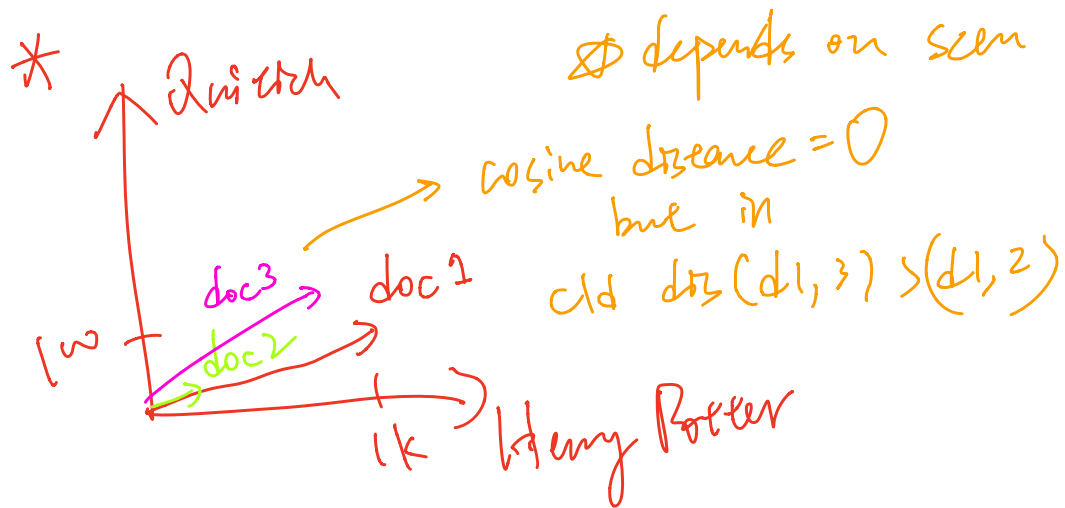 * Quidich
depends on scen
cosine distance = 0
but in
dis(d1,3) > (d1,2)
doc3
doc1
doc2
100
1k
Harry Potter